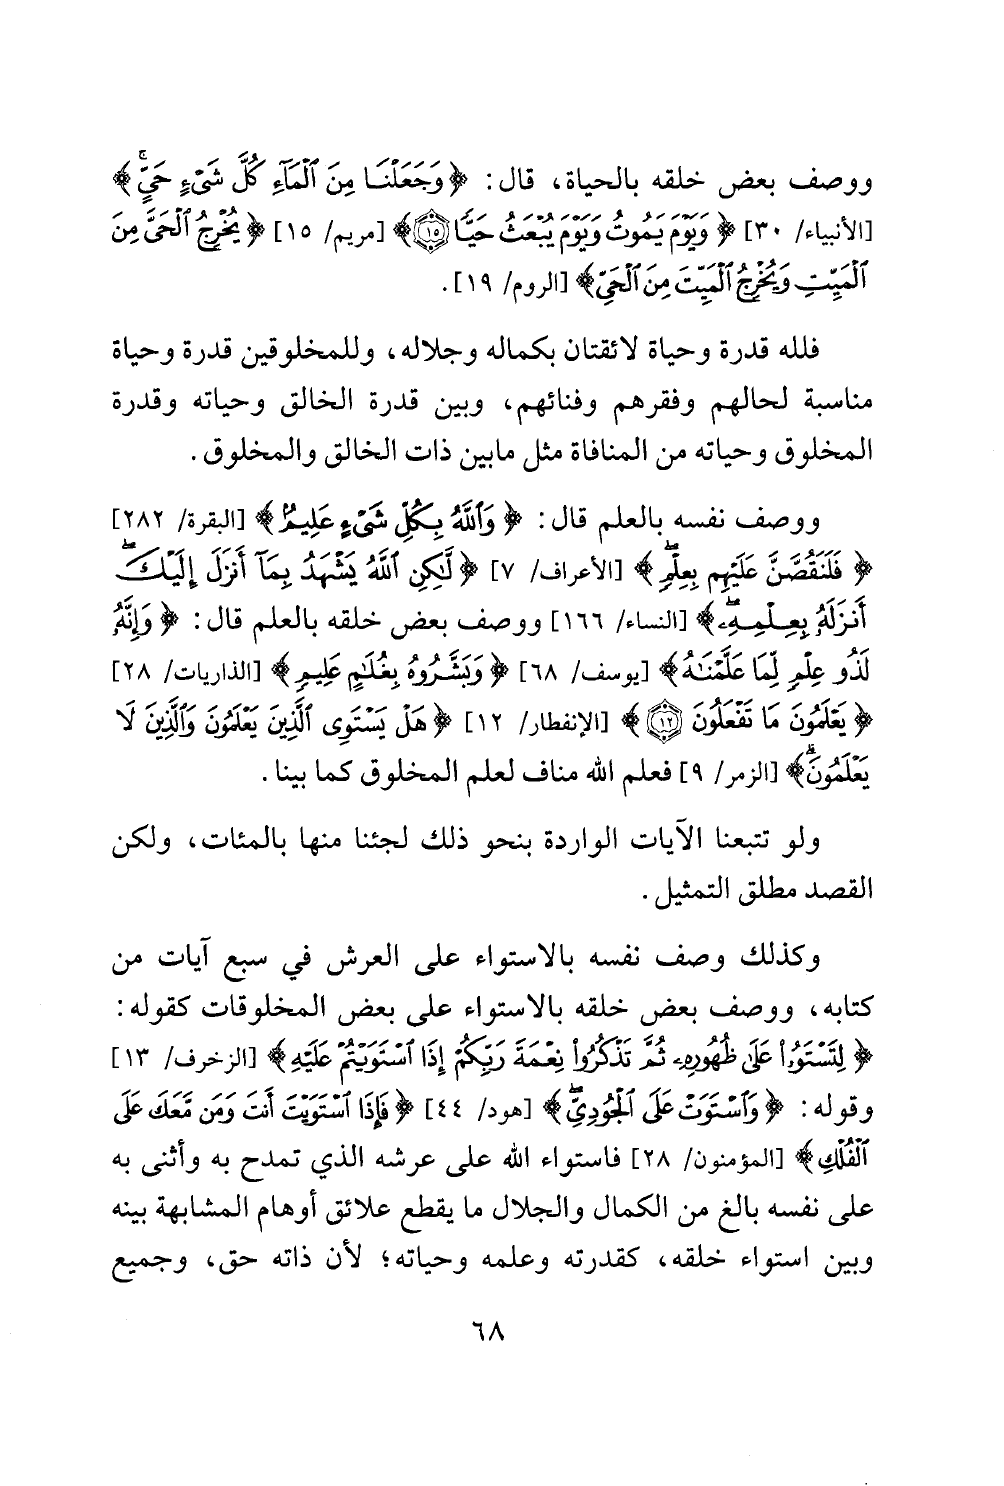 ووصف بعض خلقه بالحياة، قال: ﴿وَجَعَلْنَا مِنَ ٱلْمَآءِ كُلَّ شَىْءٍ حَىٍّۚ﴾
[الأنبياء/ ٣٠] ﴿وَيَوْمَ يَمُوتُ وَيَوْمَ يُبْعَثُ حَيًّا ١٥﴾ [مريم/ ١٥] ﴿يُخْرِجُ ٱلْحَىَّ مِنَ
ٱلْمَيِّتِ وَيُخْرِجُ ٱلْمَيِّتَ مِنَ ٱلْحَىِّ﴾ [الروم/ ١٩].
فلله قدرة وحياة لائقتان بكماله وجلاله، وللمخلوقين قدرة وحياة
مناسبة لحالهم وفقرهم وفنائهم، وبين قدرة الخالق وحياته وقدرة
المخلوق وحياته من المنافاة مثل مابين ذات الخالق والمخلوق.
ووصف نفسه بالعلم قال: ﴿وَٱللَّهُ بِكُلِّ شَىْءٍ عَلِيمٌ﴾ [البقرة/ ٢٨٢]
﴿فَلَنَقُصَّنَّ عَلَيْهِم بِعِلْمٍۖ﴾ [الأعراف/ ٧] ﴿لَّٰكِنِ ٱللَّهُ يَشْهَدُ بِمَآ أَنزَلَ إِلَيْكَۖ
أَنزَلَهُۥ بِعِلْمِهِۦۖ﴾ [النساء/ ١٦٦] ووصف بعض خلقه بالعلم قال: ﴿وَإِنَّهُۥ
لَذُو عِلْمٍ لِّمَا عَلَّمْنَٰهُ﴾ [يوسف/ ٦٨] ﴿وَبَشَّرُوهُ بِغُلَٰمٍ عَلِيمٍ﴾ [الذاريات/ ٢٨]
﴿يَعْلَمُونَ مَا تَفْعَلُونَ ١٢﴾ [الإنفطار/ ١٢] ﴿هَلْ يَسْتَوِى ٱلَّذِينَ يَعْلَمُونَ وَٱلَّذِينَ لَا
يَعْلَمُونَۗ﴾ [الزمر/ ٩] فعلم الله مناف لعلم المخلوق كما بينا.
ولو تتبعنا الآيات الواردة بنحو ذلك لجئنا منها بالمئات، ولكن
القصد مطلق التمثيل.
وكذلك وصف نفسه بالاستواء على العرش في سبع آيات من
كتابه، ووصف بعض خلقه بالاستواء على بعض المخلوقات كقوله:
﴿لِتَسْتَوُۥا۟ عَلَىٰ ظُهُورِهِۦ ثُمَّ تَذْكُرُوا۟ نِعْمَةَ رَبِّكُمْ إِذَا ٱسْتَوَيْتُمْ عَلَيْهِ﴾ [الزخرف/ ١٣]
وقوله: ﴿وَٱسْتَوَتْ عَلَى ٱلْجُودِىِّۖ﴾ [هود/ ٤٤] ﴿فَإِذَا ٱسْتَوَيْتَ أَنتَ وَمَن مَّعَكَ عَلَى
ٱلْفُلْكِ﴾ [المؤمنون/ ٢٨] فاستواء الله على عرشه الذي تمدح به وأثنى به
على نفسه بالغ من الكمال والجلال ما يقطع علائق أوهام المشابهة بينه
وبين استواء خلقه، كقدرته وعلمه وحياته؛ لأن ذاته حق، وجميع
٦٨